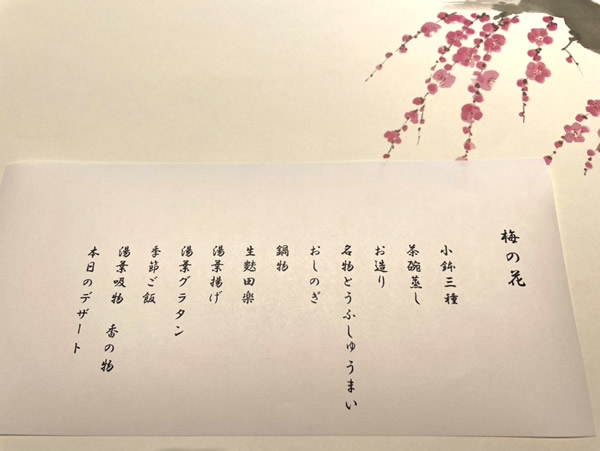 梅の花
小鉢三種
茶碗蒸し
お造り
名物とうふしゅうまい
おしのぎ
鍋物
生麩田楽
湯葉揚げ
湯葉グラタン
季節ご飯
湯葉吸物 香の物
本日のデザート